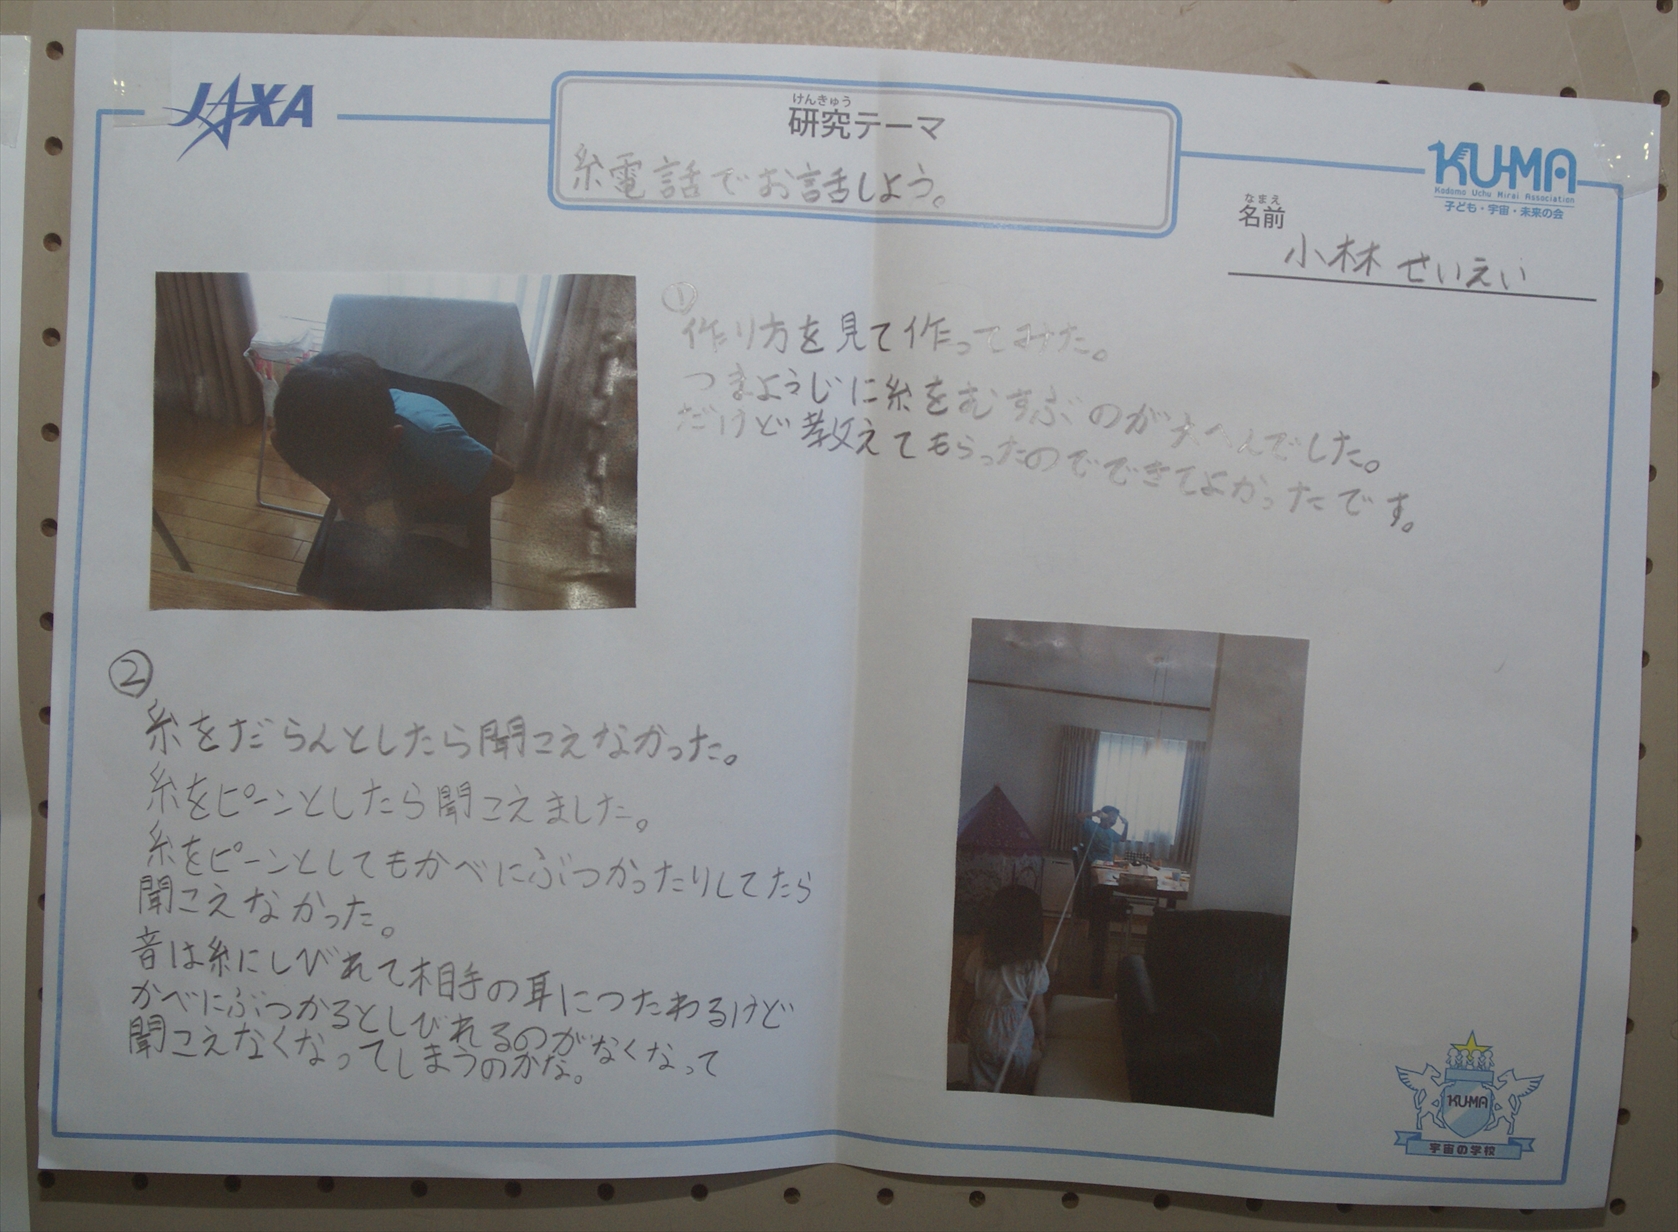 JAXA
けんきゅう
研究テーマ
糸電話でお話しよう。
KU-MA
Kodomo Uchu Mirai Association
子ども・宇宙・未来の会
なまえ
名前
小林 せいえい
①
作り方を見て作ってみた。
つまようじに糸をむすぶのが大へんでした。
だけど教えてもらったのでできてよかったです。
②
糸をだらんとしたら聞こえなかった。
糸をピーンとしたら聞こえました。
糸をピーンとしてもかべにぶつかったりしてたら
聞こえなかった。
音は糸にしびれて相手の耳につたわるけど
かべにぶつかるとしびれるのがなくなって
聞こえなくなってしまうのかな。
KU-MA
宇宙の学校